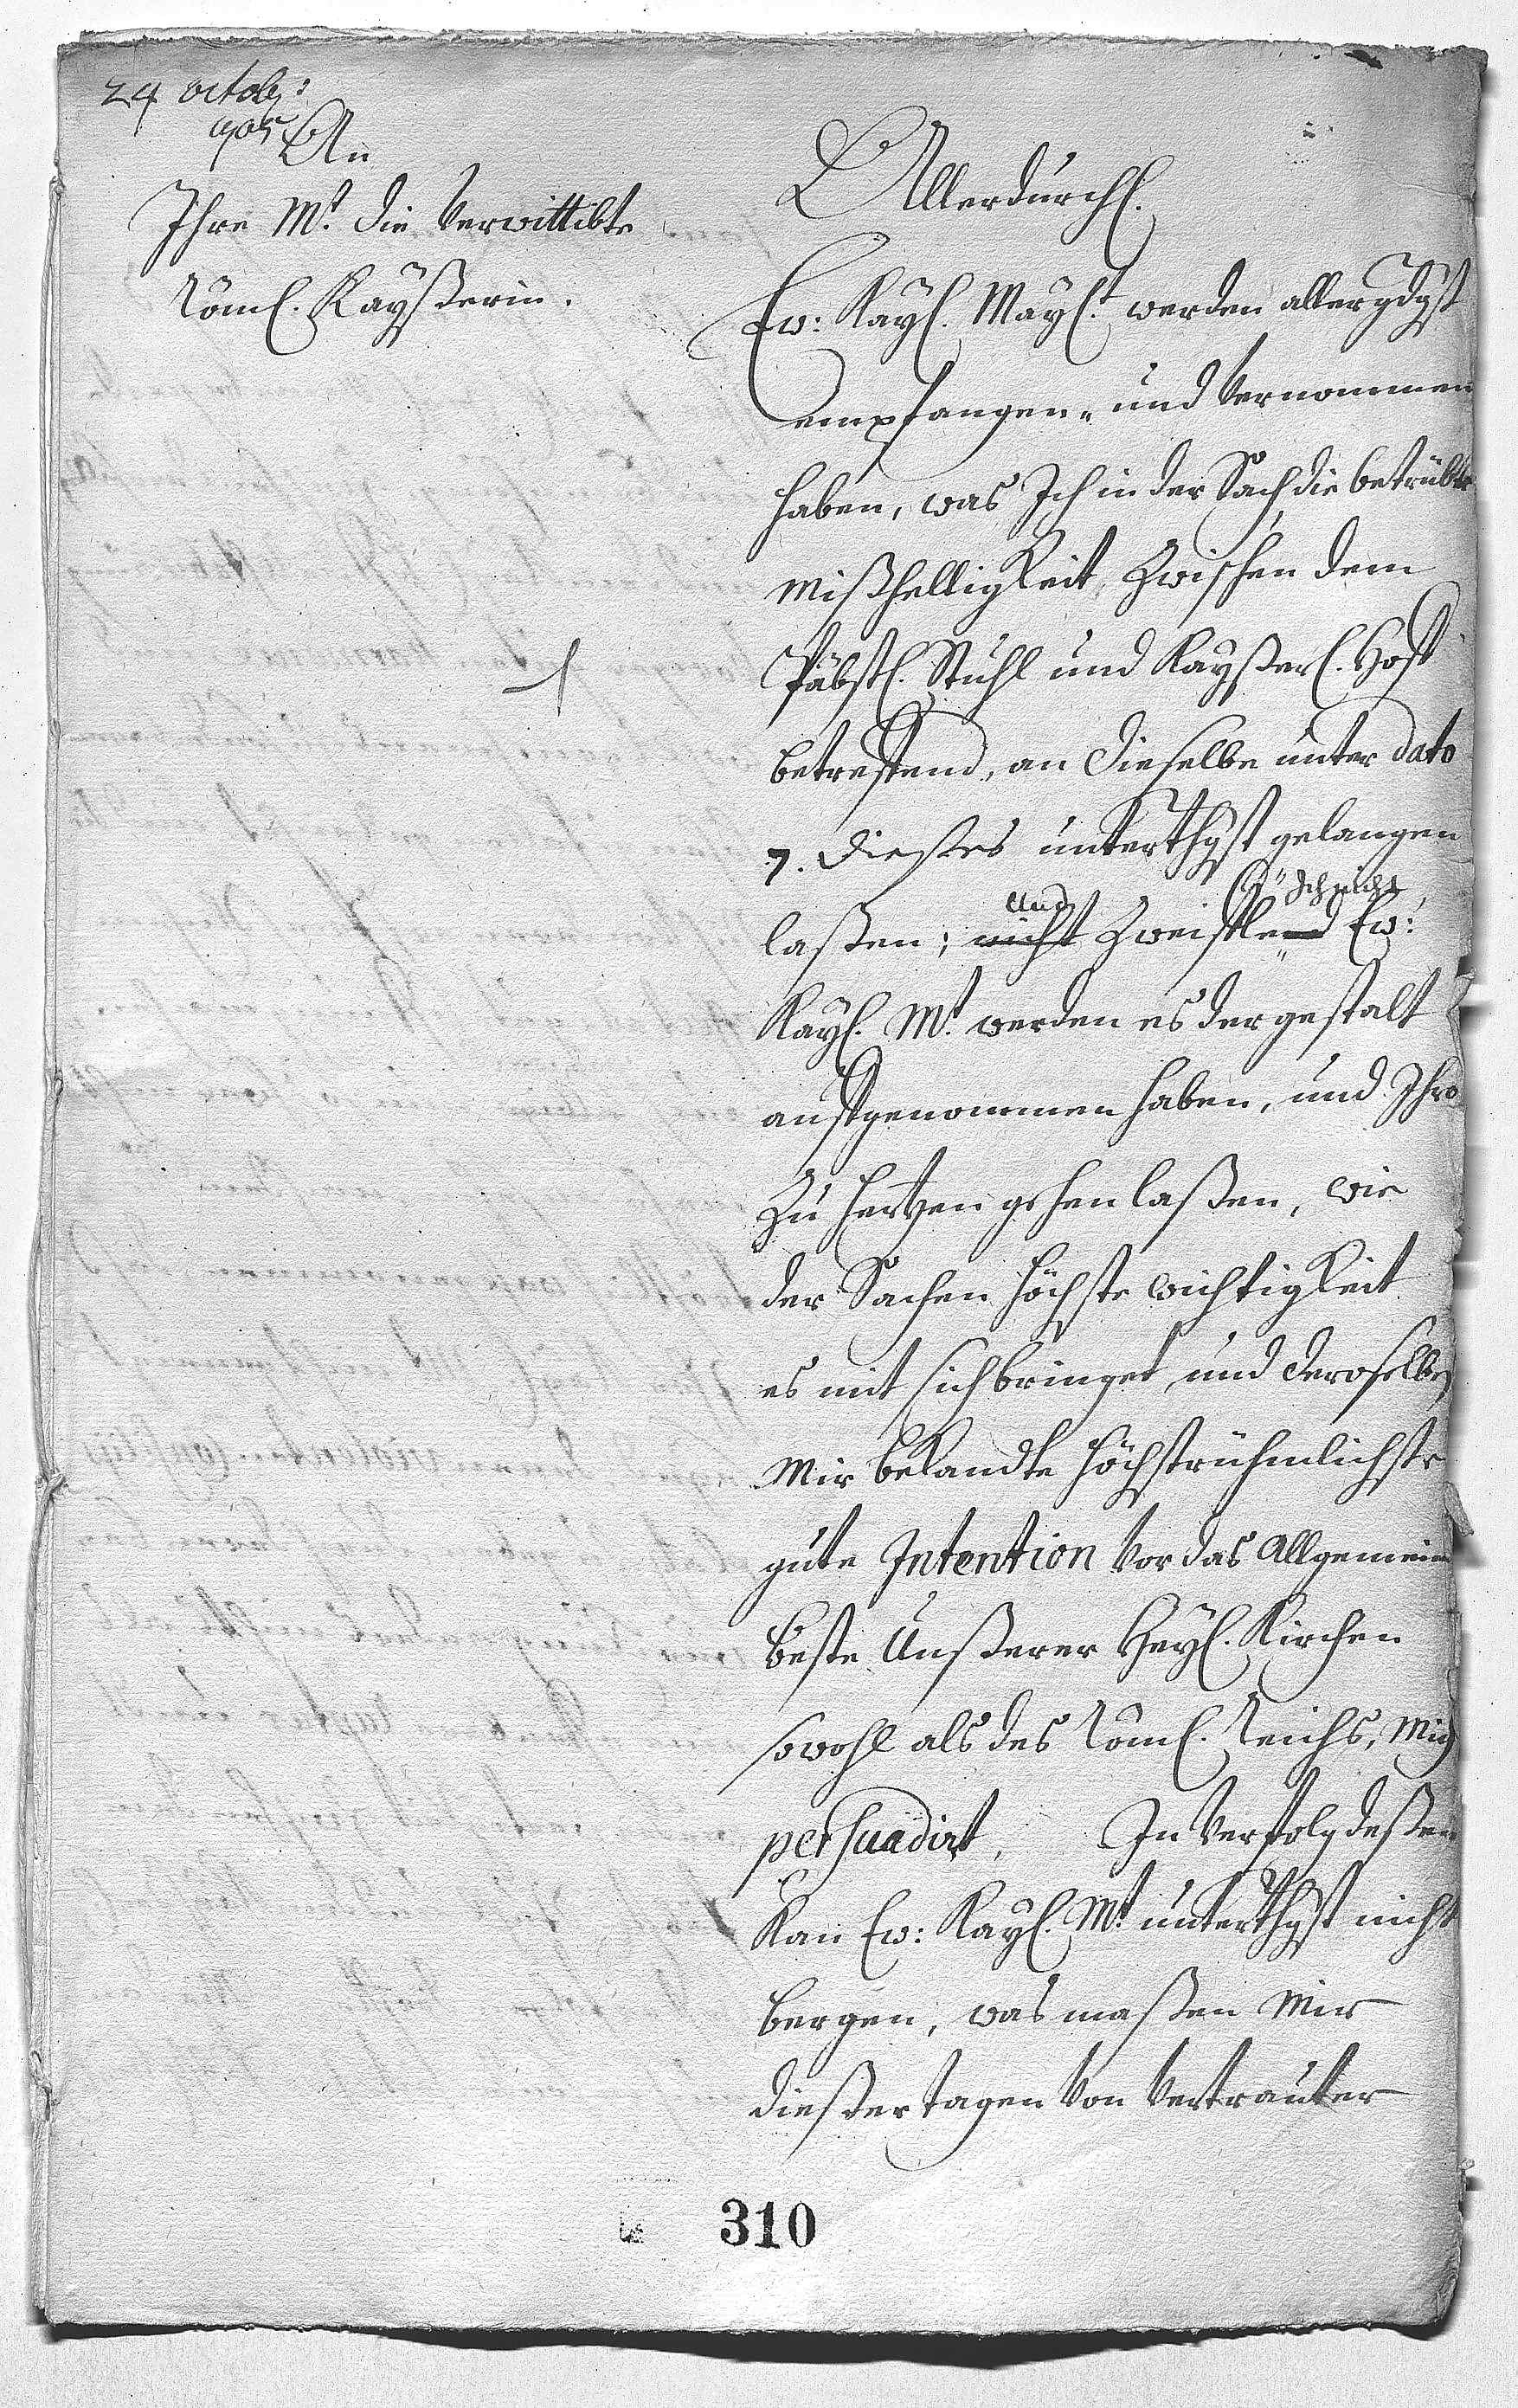 24 octob:
1705
An
Ihre Mt. die Verwittibte
Röml. Kayßerin.
Allerdurchl.
Ew: Kayl. Mayt. werden allergdgst
empfangen- und Vernommen
haben, was Ich in der Sach die betrübte
Mißhelligkeit, Zwischen dem
Päbstl. Stuhl und Kayßerl. Hoff
betreffend, an Dieselbe unter dato
7. dießes unterthgst gelangen
laßen; nicht Und Zweiffle Ich nicht Ew:
Kayl. Mt. werden es dergestalt
auffgenommen haben, und Ihro
Zu Hertzen gehen laßen, wie
der Sachen höchste wichtigkeit
es mit sich bringet und deroselben
Mir bekandte höchstrühmlichste
gute Intention vor das Allgemeine
beste Unßerer Heyl. Kirchen
sowohl als des Röml. Reichs, Mich
persuadirt, In Verfolg deßen
Kan Ew: Kayl. Mt. unterthgst nicht
bergen, was maßen Mir
dießer tagen von Vertrauter
310